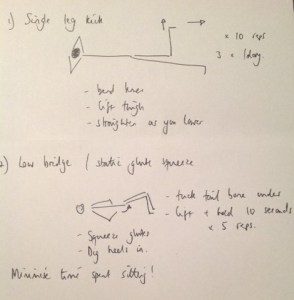 1) Single leg kick
× 10 reps
- bend knee
- lift thigh
- straighten as you lower
2) Low bridge / static glute squeeze
- tuck tail bone under
- lift + hold 10 seconds
× 5 reps.
- Squeeze glutes
- Dig heels in.
Minimise time spent sitting!